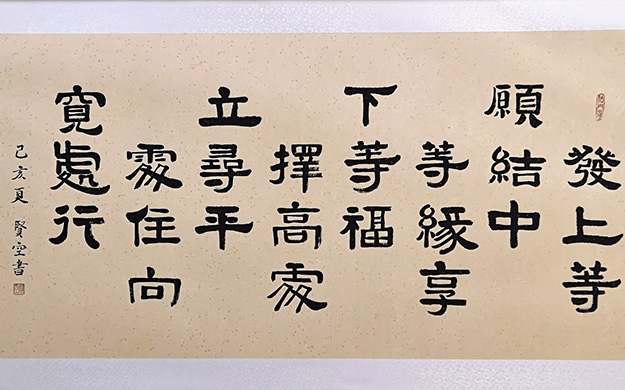 發上等
願結中
等緣享
下等福
擇高處
立尋平
處住向
寬處行
己亥夏 賢空書